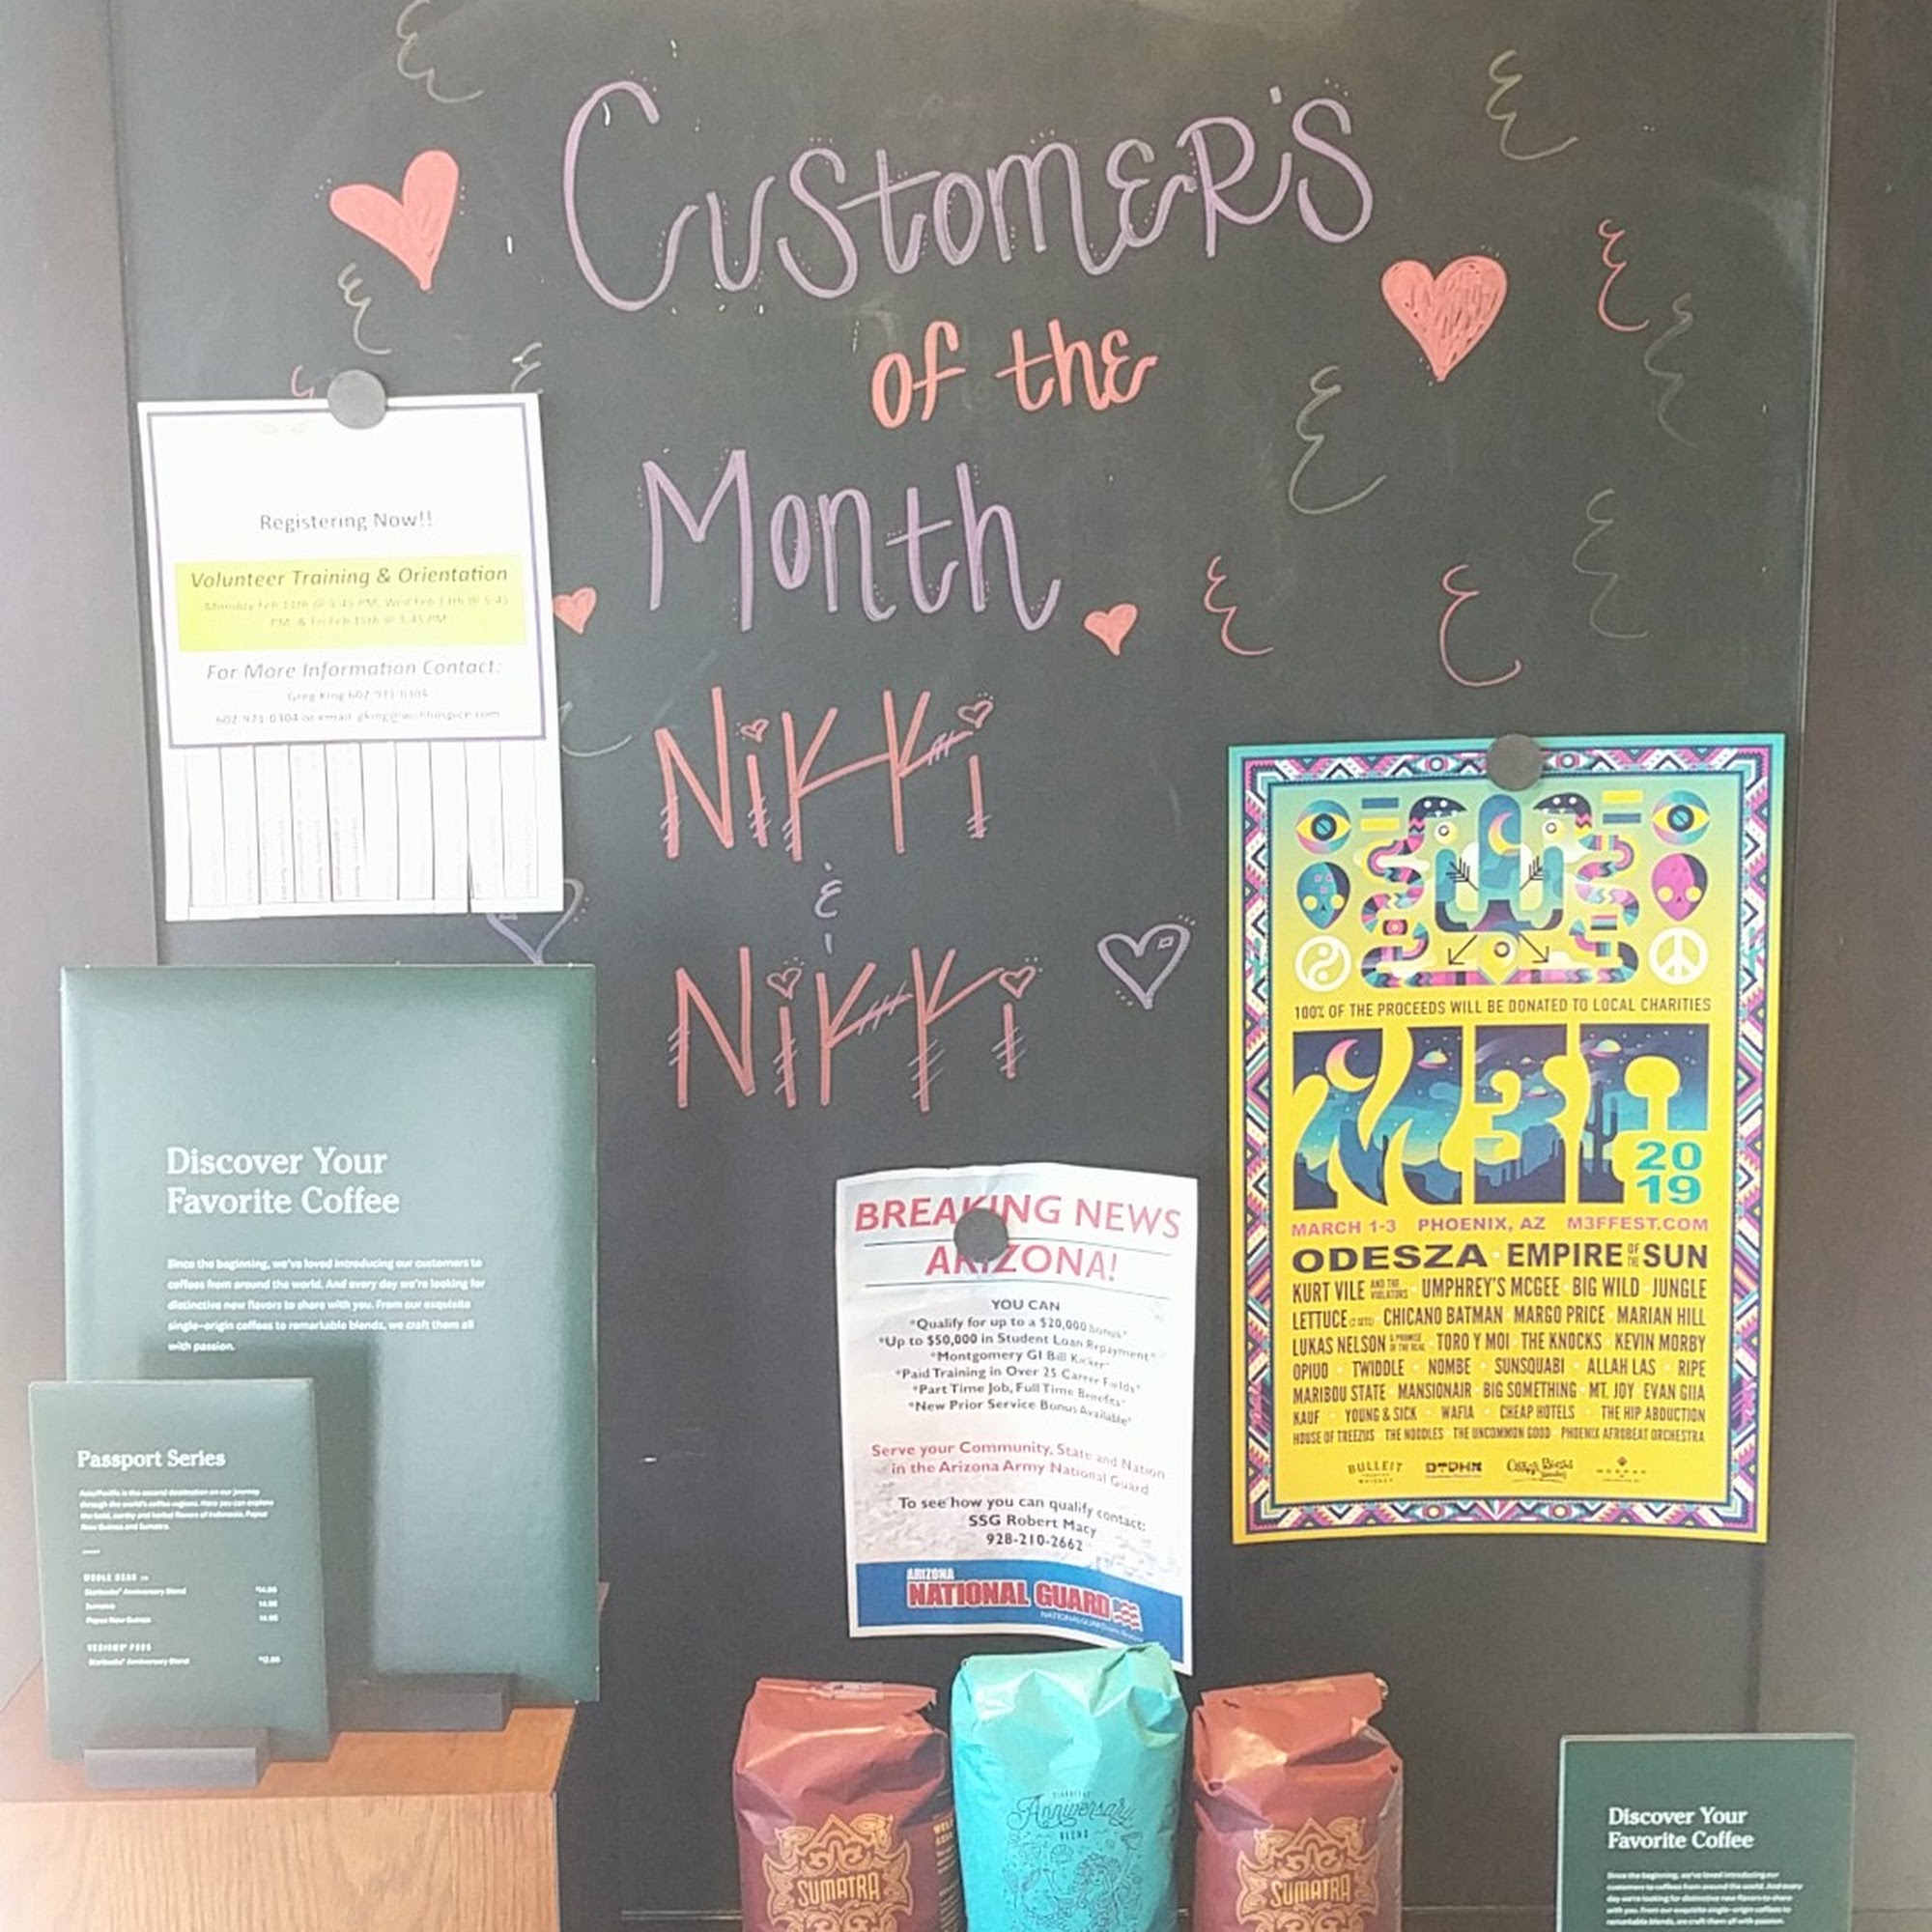 Customer's
of the
Month
Nikki
&
Nikki
Registering Now!!
Volunteer Training & Orientation
Monday Feb 11th @ 5:45 PM, Wed Feb 13th @ 5:45
PM, & Fri Feb 15th @ 5:45 PM
For More Information Contact:
Greg King 602-971-0304
602-971-0304 or email gking@wohhospice.com
Discover Your
Favorite Coffee
Since the beginning, we've loved introducing our customers to
coffees from around the world. And every day we're looking for
distinctive new flavors to share with you. From our exquisite
single-origin coffees to remarkable blends, we craft them all
with passion.
Passport Series
Asia/Pacific is the second destination on our journey
through the world's coffee regions. Here you can explore
the bold, earthy and herbal flavors of Indonesia, Papua
New Guinea and Sumatra.
WHOLE BEAN
Starbucks® Anniversary Blend
Sumatra
Papua New Guinea
Starbucks® Anniversary Blend
BREAKING NEWS
ARIZONA!
YOU CAN
*Qualify for up to a $20,000 bonus*
*Up to $50,000 in Student Loan Repayment*
*Montgomery GI Bill Kicker*
*Paid Training in Over 25 Career Fields*
*Part Time Job, Full Time Benefits*
*New Prior Service Bonus Available*
Serve your Community, State and Nation
in the Arizona Army National Guard
To see how you can qualify contact:
SSG Robert Macy
928-210-2662
ARIZONA
NATIONAL GUARD
100% OF THE PROCEEDS WILL BE DONATED TO LOCAL CHARITIES
M3F
20
19
MARCH 1-3 PHOENIX, AZ M3FFEST.COM
ODESZA · EMPIRE OF THE SUN
KURT VILE AND THE VIOLATORS · UMPHREY'S MCGEE · BIG WILD · JUNGLE
LETTUCE (2 SETS) · CHICANO BATMAN · MARGO PRICE · MARIAN HILL
LUKAS NELSON & PROMISE OF THE REAL · TORO Y MOI · THE KNOCKS · KEVIN MORBY
OPIUO · TWIDDLE · NOMBE · SUNSQUABI · ALLAH LAS · RIPE
MARIBOU STATE · MANSIONAIR · BIG SOMETHING · MT. JOY · EVAN GIIA
KAUF · YOUNG & SICK · WAFIA · CHEAP HOTELS · THE HIP ABDUCTION
HOUSE OF TREEZUS · THE NOODLES · THE UNCOMMON GOOD · PHOENIX AFROBEAT ORCHESTRA
BULLEIT
WHISKEY
DTPHX
SUMATRA
Anniversary
BLEND
SUMATRA
Discover Your
Favorite Coffee
Since the beginning, we've loved introducing our
customers to coffees from around the world. And every
day we're looking for distinctive new flavors to share
with you. From our exquisite single-origin coffees to
remarkable blends, we craft them all with passion.